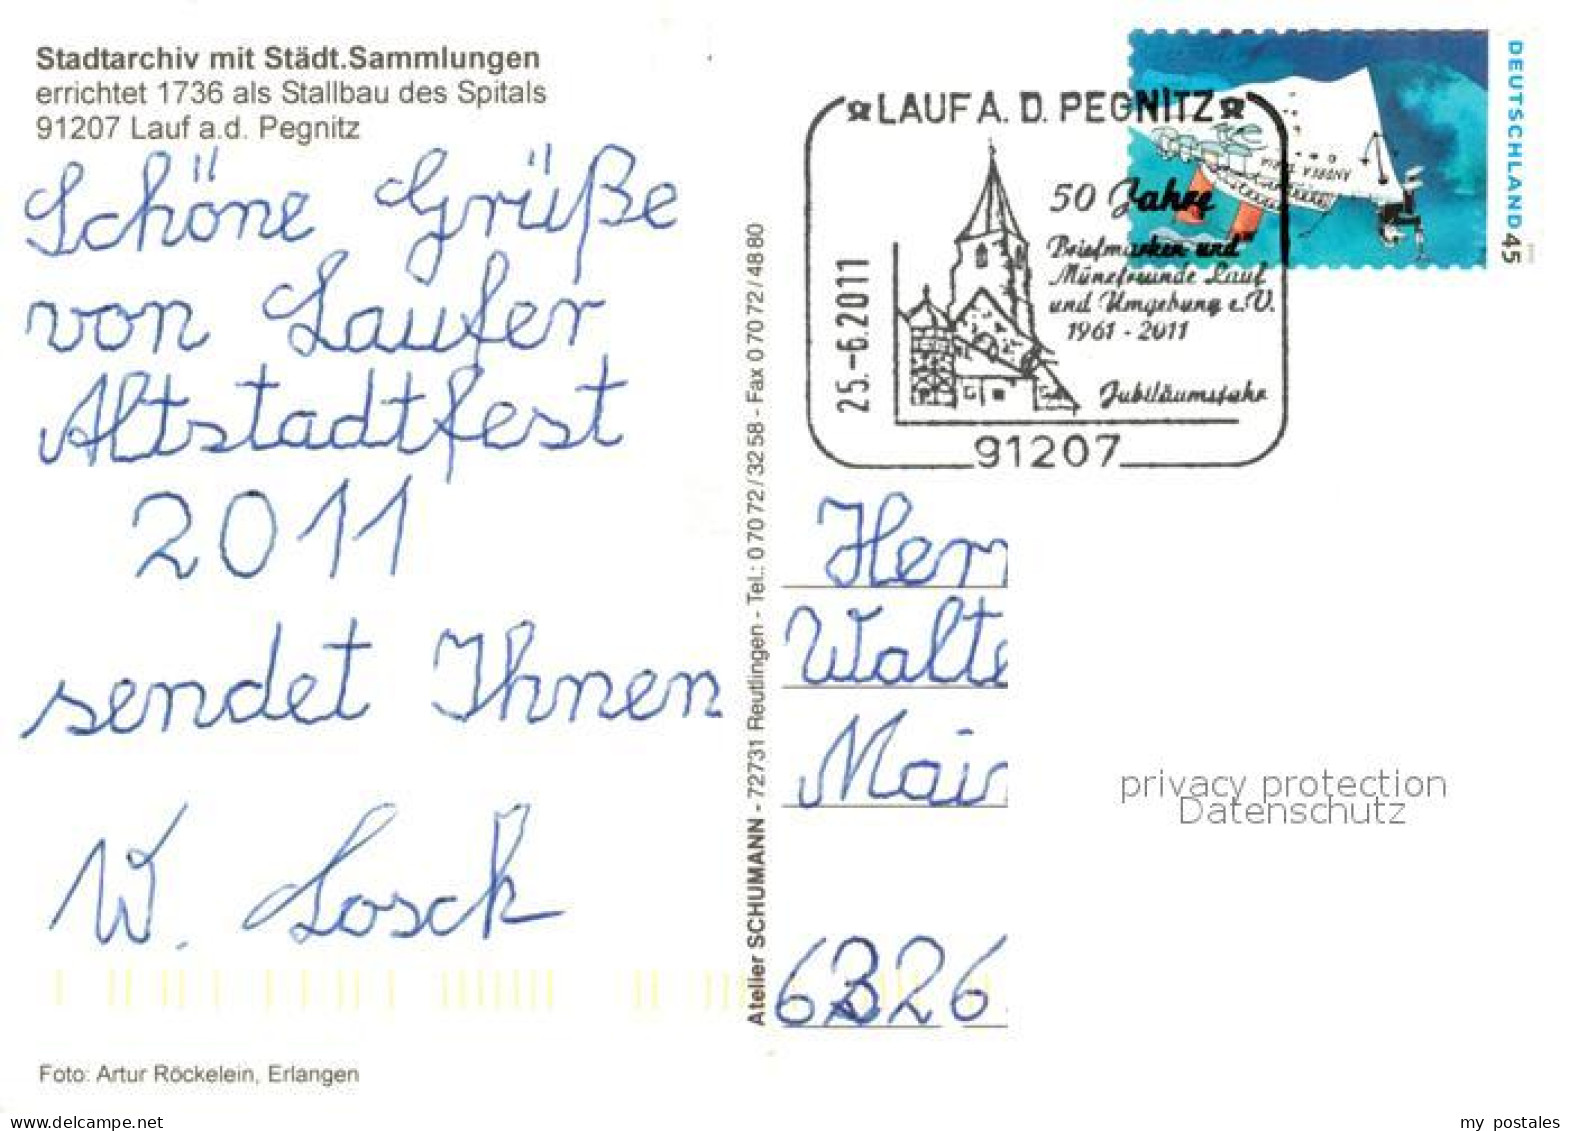 Stadtarchiv mit Städt.Sammlungen
errichtet 1736 als Stallbau des Spitals
91207 Lauf a.d. Pegnitz
Schöne Grüße
von Laufer
Altstadtfest
2011
sendet Ihnen
W. Losch
Foto: Artur Röckelein, Erlangen
Atelier SCHUMANN - 72731 Reutlingen - Tel.: 07072/3258 - Fax 07072/4880
LAUF A. D. PEGNITZ
50 Jahre
Briefmarken und
Münzfreunde Lauf
und Umgebung e.V.
1961 - 2011
Jubiläumsjahr
25.-6.2011
91207
DEUTSCHLAND 45
ANDREA DORIA
Herr
Walte
Mai
6326
privacy protection
Datenschutz
delcampe.net
my_postales